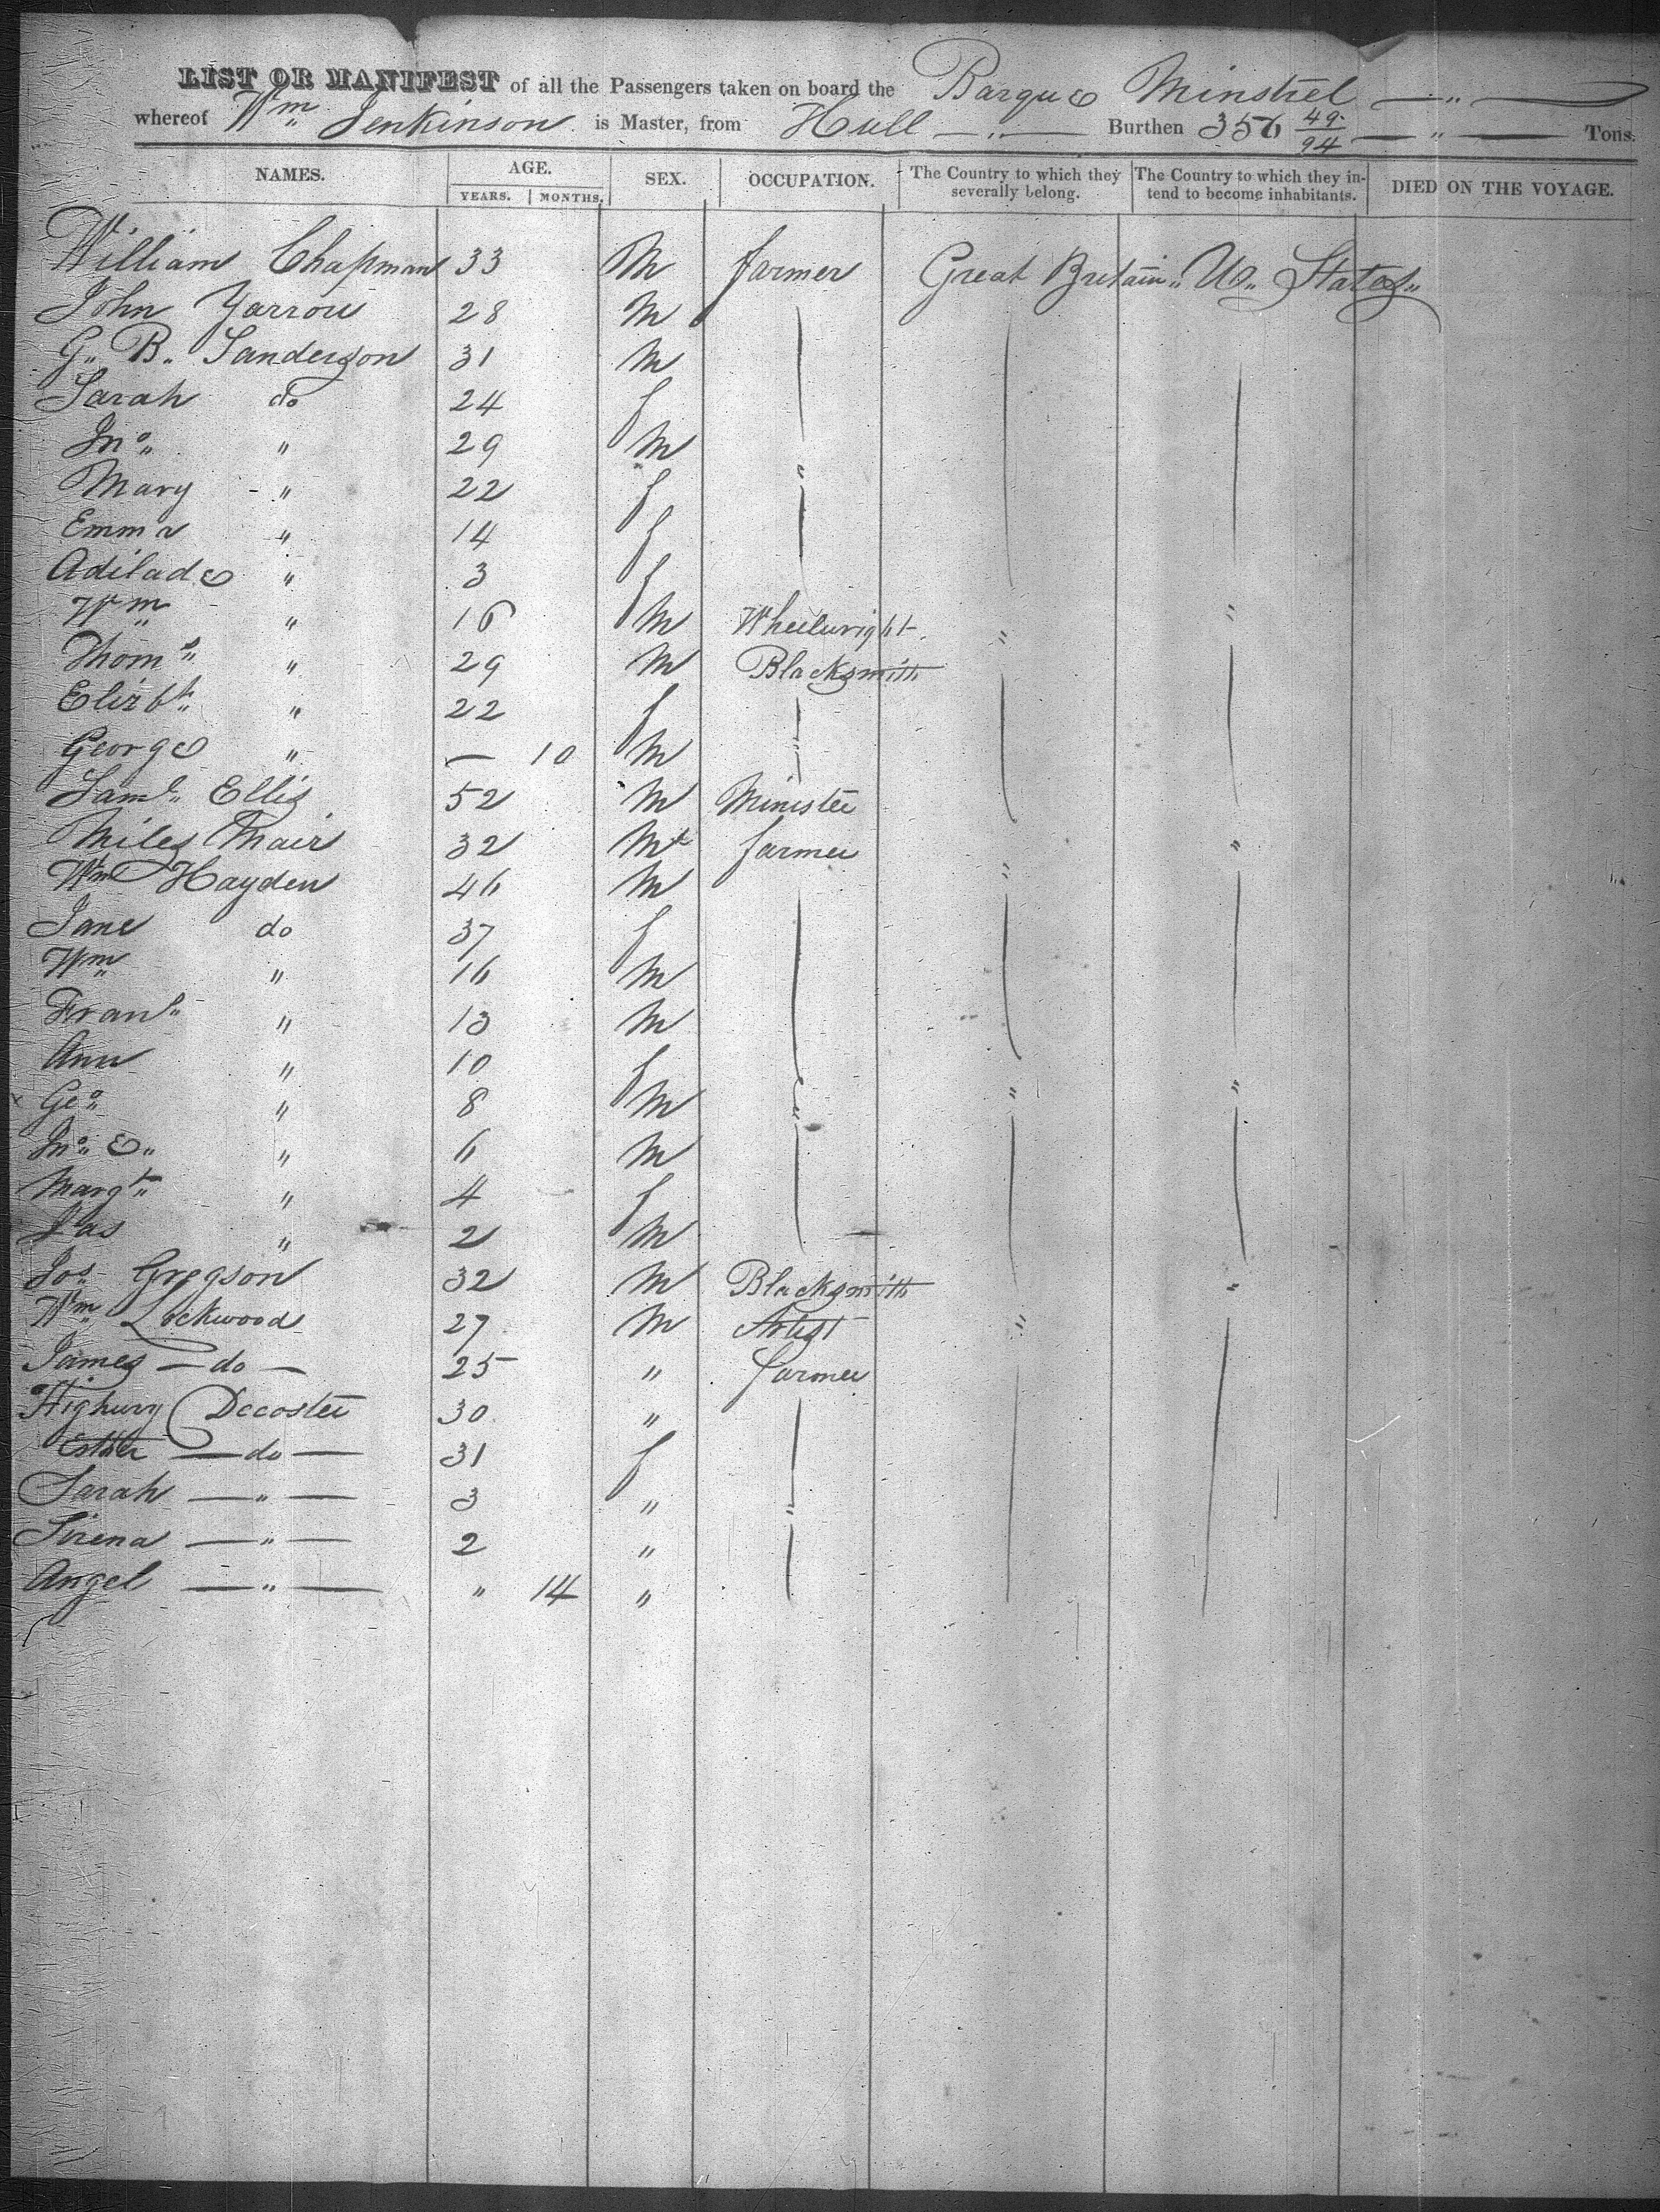 LIST OR MANIFEST of all the Passengers taken on board the Barque Minstrel — " —
whereof Wm Jenkinson is Master, from Hull — " — Burthen 356 49/94 — " — Tons.
NAMES. AGE. YEARS. MONTHS. SEX. OCCUPATION. The Country to which they severally belong. The Country to which they intend to become inhabitants. DIED ON THE VOYAGE.
William Chapman 33 M farmer Great Britain " Ud. States "
John Yarrow 28 M
G. B. Sanderson 31 M
Sarah do 24 f
Jno " 29 M
Mary " 22 f "
Emma " 14 f
Adilade " 3 f
Wm " 16 M Wheelwright " "
Thoms " 29 M Blacksmith
Elizbt " 22 f
George " — 10 M "
Saml Ellis 52 M Minister
Miles Mair 32 M farmer "
Wm Hayden 46 M "
Jane do 37 f
Wm " 16 M
Frans " 13 M
Ann " 10 f
Geo " 8 M " " "
Jno E. " 6 M
Margt " 4 f
Jas " 2 M
Jos Gregson 32 M Blacksmith "
Wm Lockwood 27 M Artist "
James — do — 25 " farmer
Decoster 30 "
Esther — do — 31 f
Sarah — " — 3 " "
Sirena — " — 2 "
Angel — " — " 14 "